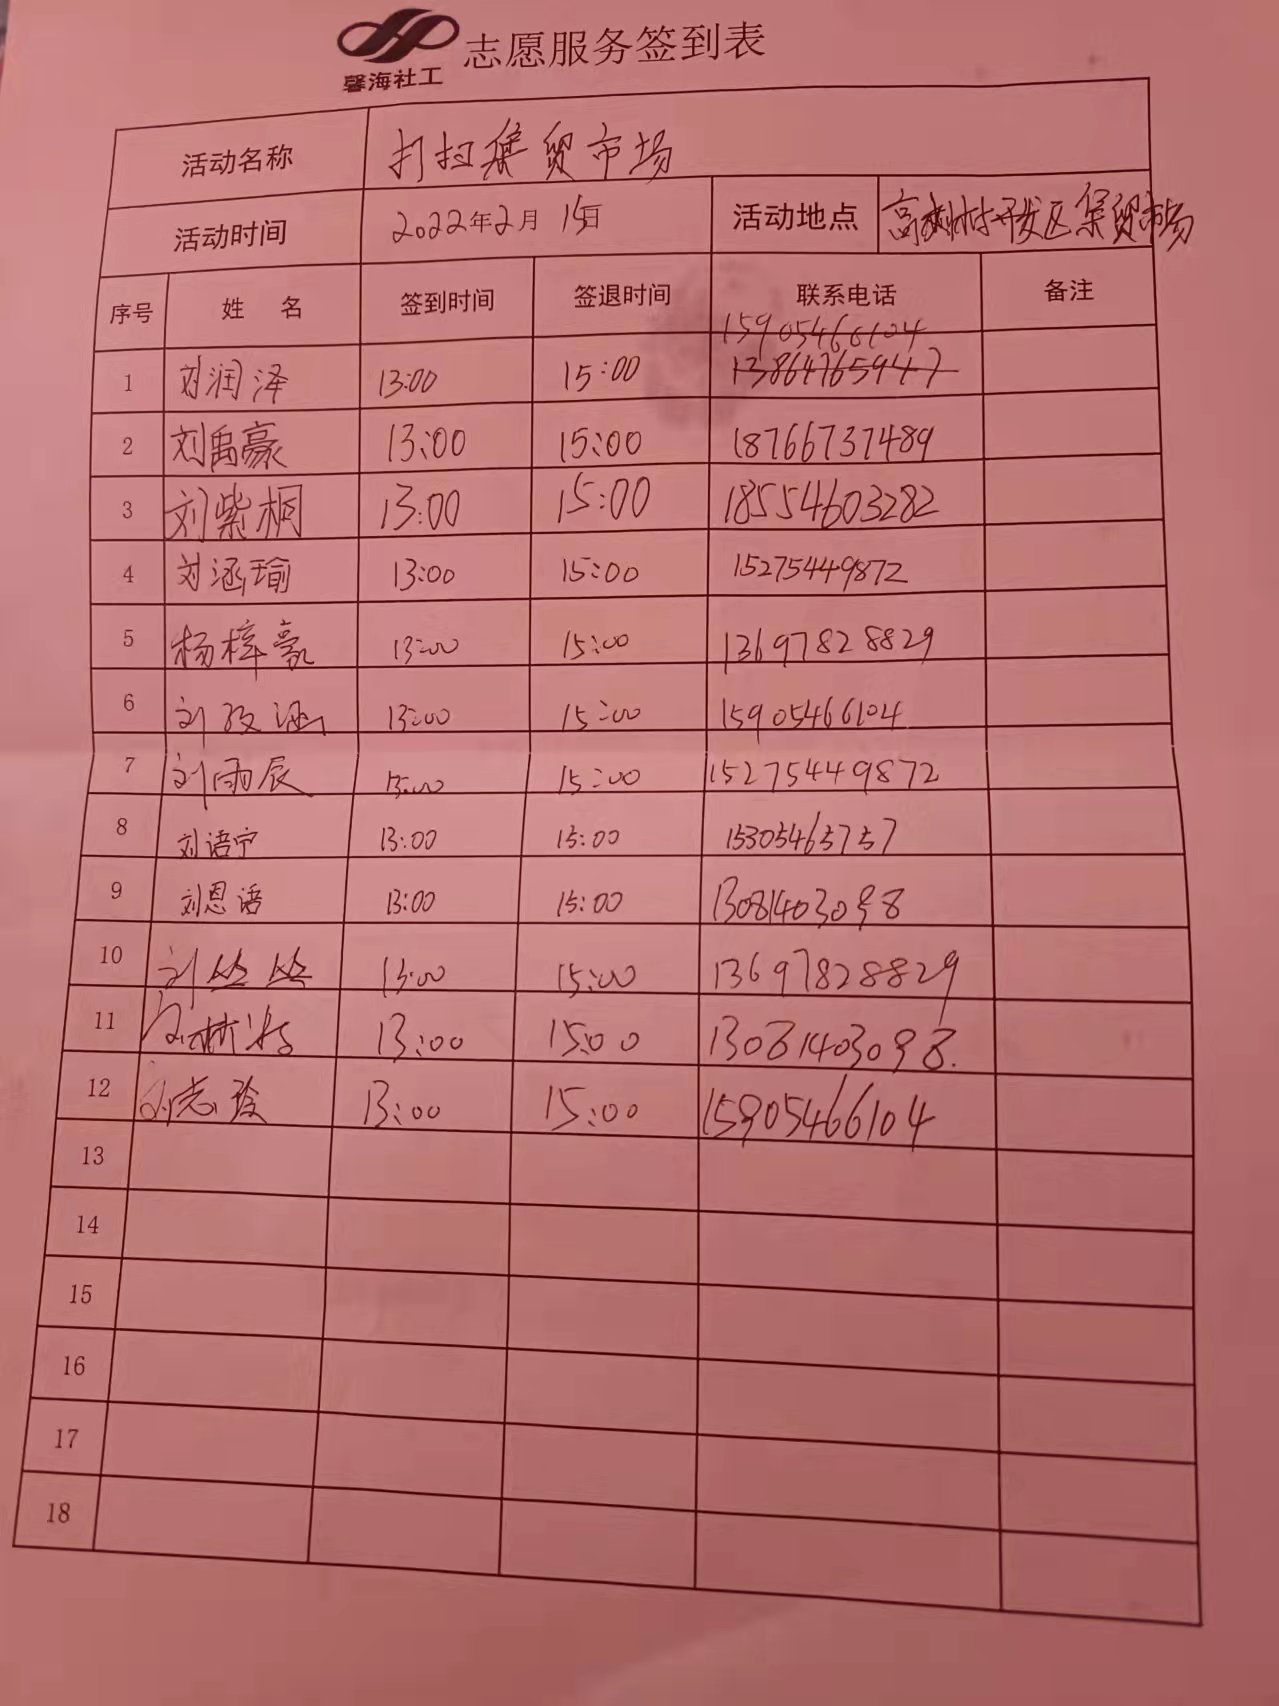 馨海社工 志愿服务签到表
活动名称 打扫集贸市场
活动时间 2022年2月15日 活动地点 开发区集贸市场
序号 姓名 签到时间 签退时间 联系电话 备注
15905466104
1 刘润泽 13:00 15:00 13864765947
2 刘禹豪 13:00 15:00 18766737489
3 刘紫桐 13:00 15:00 18554603282
4 刘涵瑜 13:00 15:00 15275449872
5 杨梓豪 13:00 15:00 13697828829
6 刘 涵 13:00 15:00 15905466104
7 刘雨辰 13:00 15:00 15275449872
8 刘语宁 13:00 15:00 15305463737
9 刘恩语 13:00 15:00 13081403098
10 刘丛丛 13:00 15:00 13697828829
11 13:00 15:00 13081403098.
12 刘志玲 13:00 15:00 15905466104
13
14
15
16
17
18